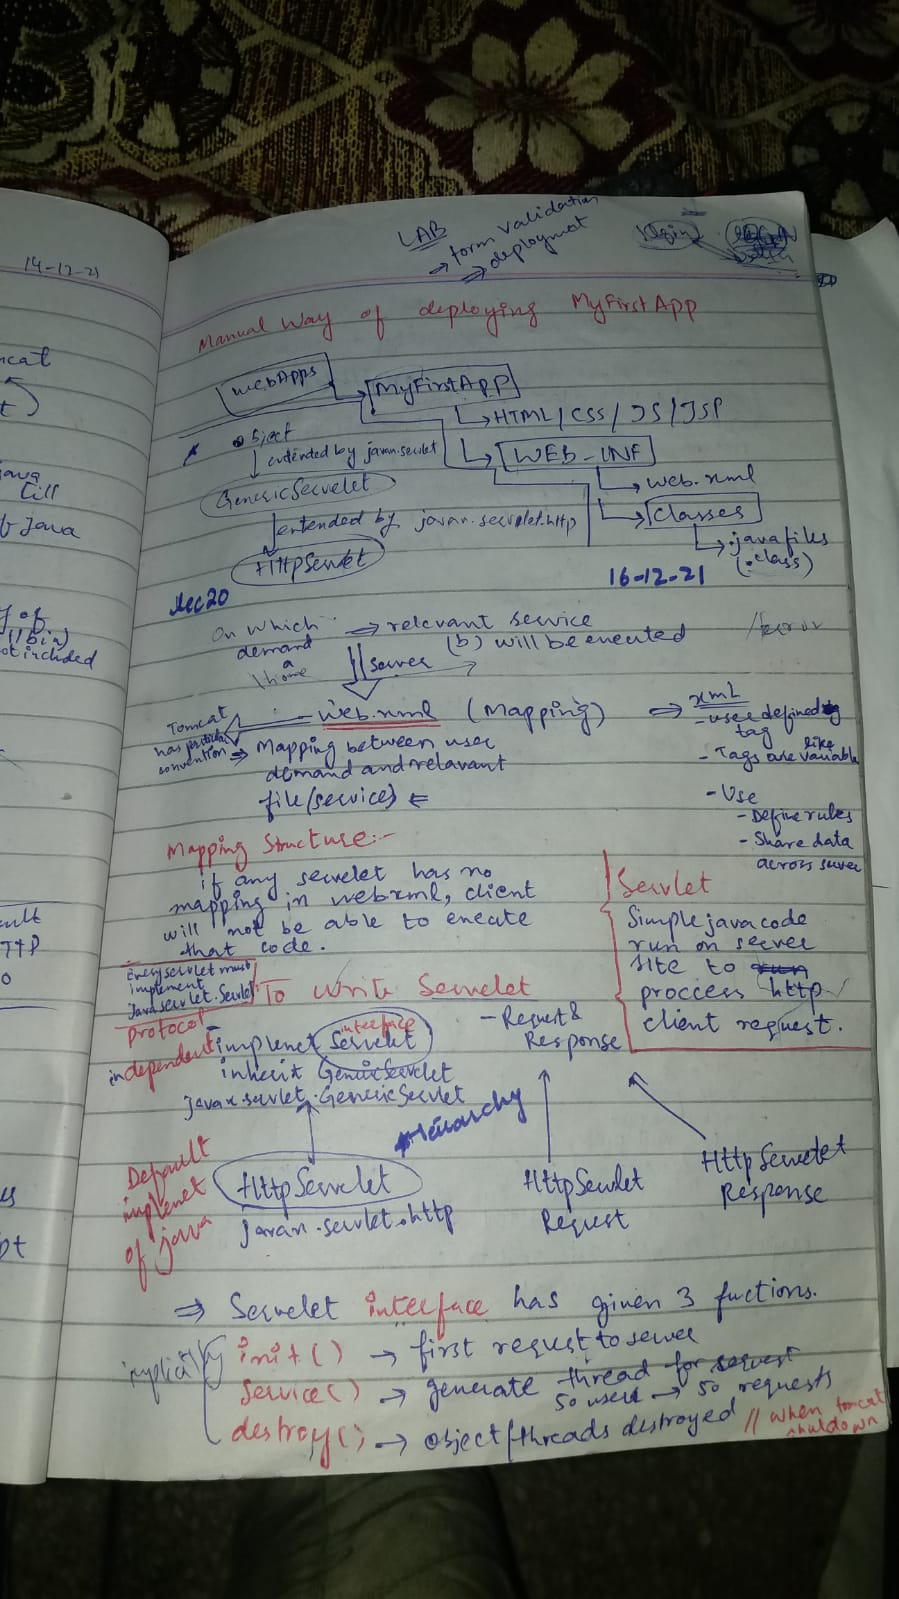 14-12-21
LAB
→ form validation
⇒ deployment
login
Manual Way of deploying MyFirstApp
WebApps
MyFirstAPP
HTML/CSS/JS/JSP
WEB-INF
web.xml
Classes
.java files
(.class)
object
extended by javax.servlet
GenericServelet
extended by javax.servelet.http
HttpServlet
16-12-21
Lec20
On which
demand
a
\home
⇒ relevant service
(b) will be executed
server
/error
Tomcat
has particular
convention
Web.xml (Mapping)
⇒ Mapping between user
demand and relavant
file(service) ⇐
⇒ xml
- user defined
tag
- Tags are like variable
- Use
- Define rules
- Share data
across server
Mapping Structure:-
if any servelet has no
mapping in webxml, client
will not be able to execute
that code.
Servlet
Simple java code
run on server
site to
proccess http
client request.
Every servlet must
implement
Java servlet.Servlet
To Write Servelet
Protocol
independent
- implenet Servlet
interface
inherit GenericServelet
javax servlet.GenericServlet
- Request &
Response
Hierarchy
Default
implenet
of java
HttpServelet
javax.servlet.http
HttpServlet
Request
HttpServelet
Response
⇒ Servelet interface has given 3 fuctions.
implicitly
init() → first request to server
service() → generate thread for request
50 users → 50 requests
destroy() → object/threads destroyed // when tomcat
shutdown
ncat
t)
java
till
f java
of
(bin)
not included
ult
TTP
pt